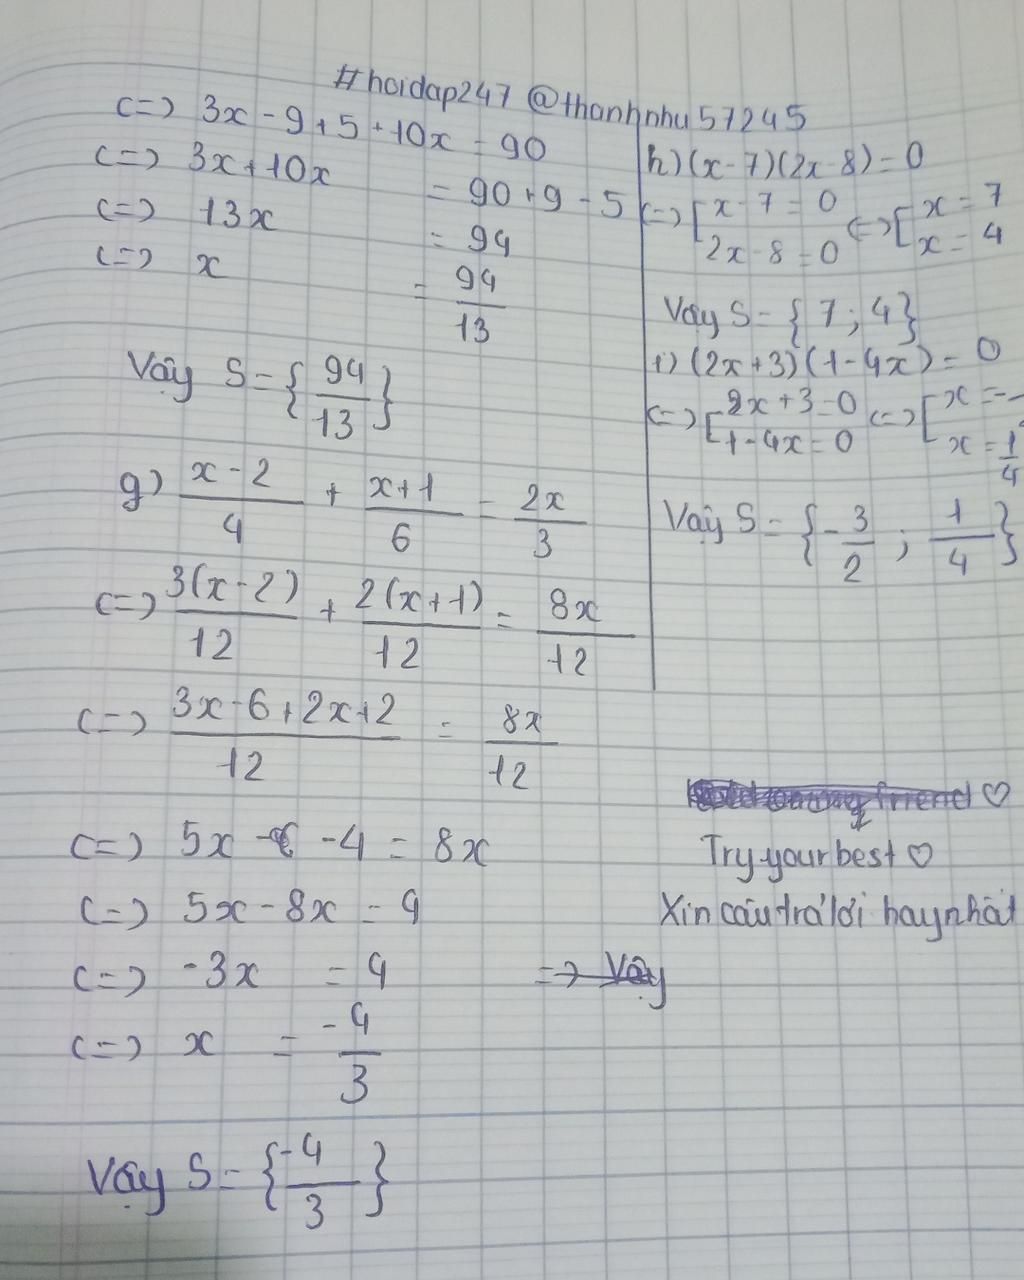 #hoidap247 @thanhnhu57245
<=> 3x - 9 + 5 + 10x = 90
<=> 3x + 10x = 90 + 9 - 5
<=> 13x = 94
<=> x = 94/13
Vậy S = {94/13}
g) (x - 2)/4 + (x + 1)/6 = 2x/3
<=> 3(x - 2)/12 + 2(x + 1)/12 = 8x/12
<=> (3x - 6 + 2x + 2)/12 = 8x/12
<=> 5x - 4 = 8x
<=> 5x - 8x = 4
<=> -3x = 4
=> Vậy
<=> x = -4/3
Vậy S = {-4/3}
h) (x - 7)(2x - 8) = 0
<=> [x - 7 = 0 <=> [x = 7
2x - 8 = 0 x = 4
Vậy S = {7; 4}
i) (2x + 3)(1 - 4x) = 0
<=> [2x + 3 = 0 <=> [x = -
1 - 4x = 0 x = 1/4
Vậy S = {-3/2; 1/4}
friend ♡
Try your best ♡
Xin câu trả lời hay nhất